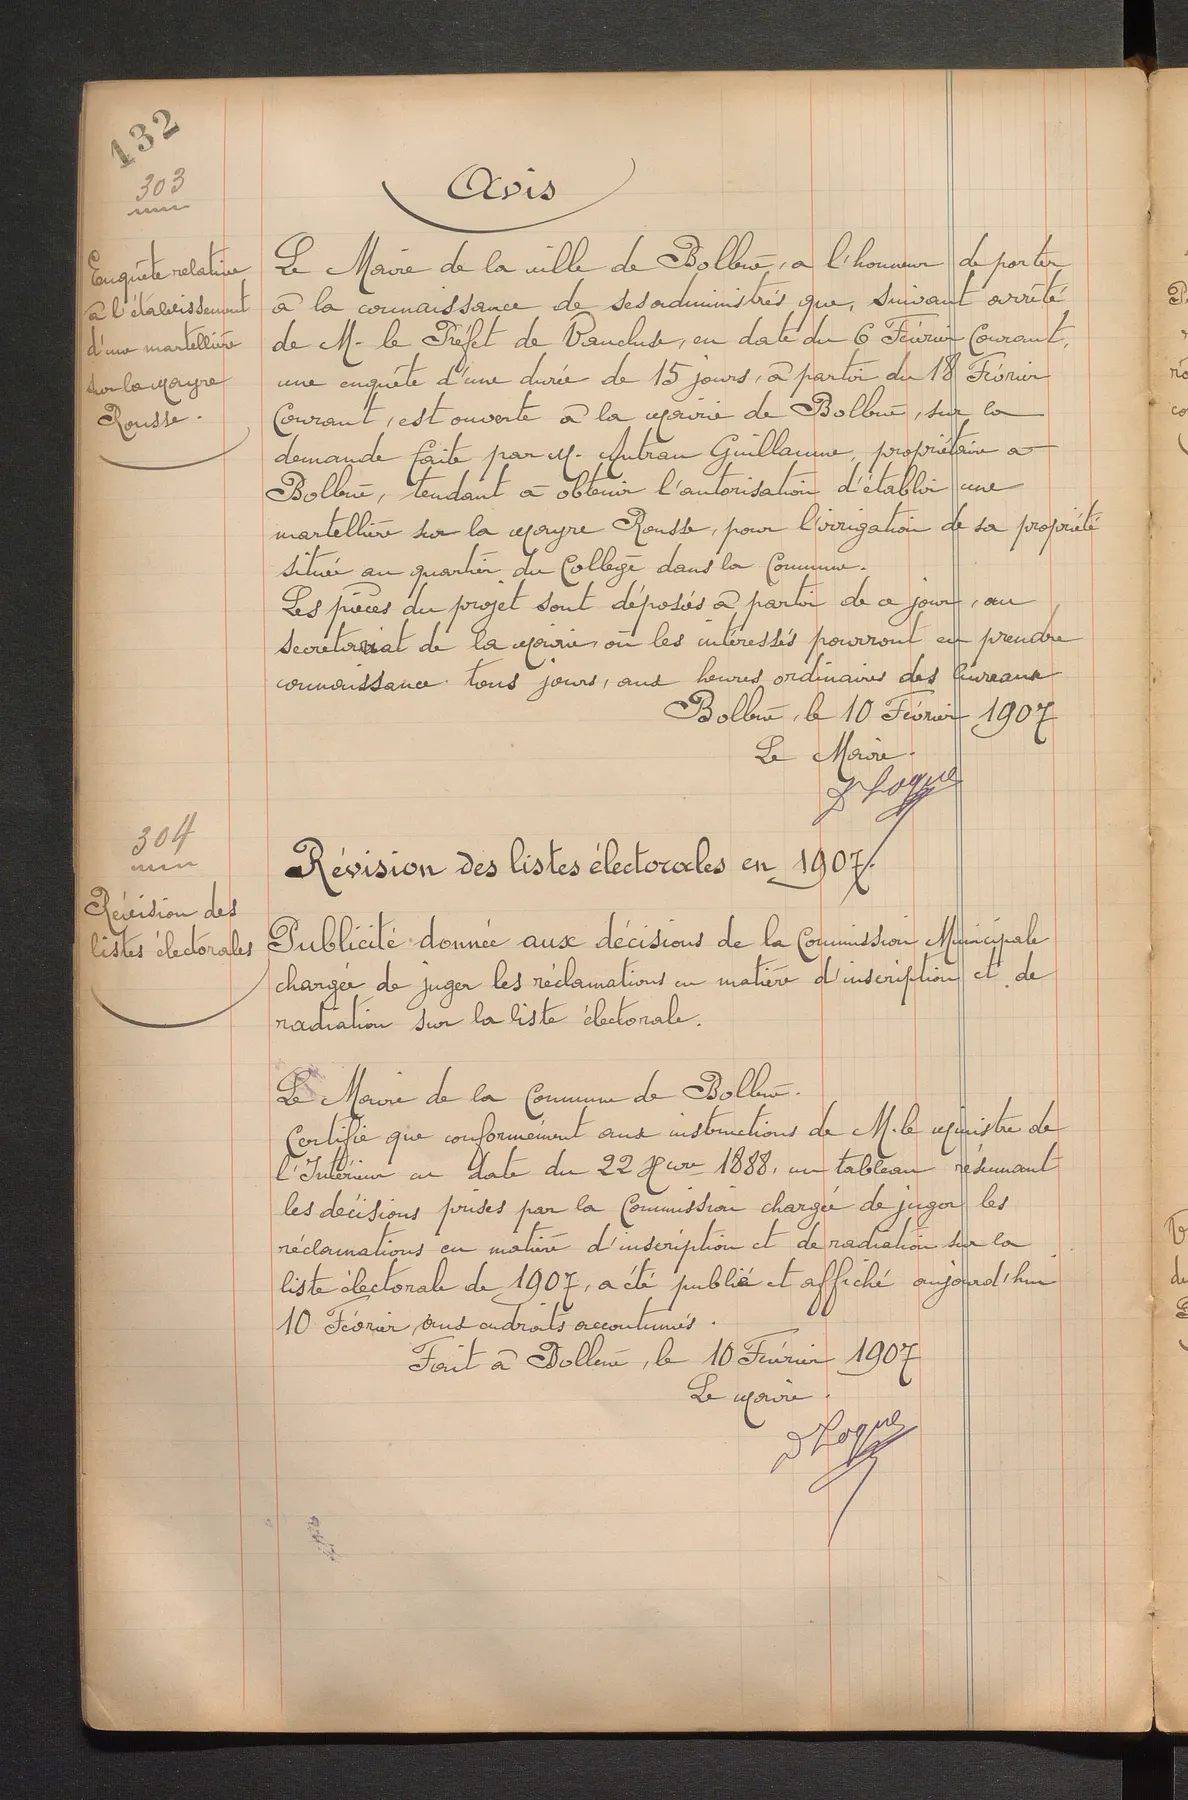 132
303
Avis
Enquête relative
à l'établissement
d'une martellière
sur la mayre
Rousse.
Le Maire de la ville de Bollène, a l'honneur de porter
à la connaissance de ses administrés que, suivant arrêté
de M. le Préfet de Vaucluse, en date du 6 Février Courant,
une enquête d'une durée de 15 jours, à partir du 18 Février
Courant, est ouverte à la mairie de Bollène, sur la
demande faite par M. Autran Guillaume, propriétaire à
Bollène, tendant à obtenir l'autorisation d'établir une
martellière sur la mayre Rousse, pour l'irrigation de sa propriété
située au quartier du Collège dans la Commune.
Les pièces du projet sont déposés à partir de ce jour, au
secrétariat de la mairie, où les intéressés pourront en prendre
connaissance tous jours, aux heures ordinaires des bureaux
Bollène, le 10 Février 1907
Le Maire.
304
Révision des
listes électorales
Révision des listes électorales en 1907.
Publicité donnée aux décisions de la Commission Municipale
chargée de juger les réclamations en matière d'inscription et de
radiation sur la liste électorale.
Le Maire de la Commune de Bollène.
Certifie que conformément aux instructions de M. le Ministre de
l'Intérieur en date du 22 1888, un tableau résumant
les décisions prises par la Commission chargée de juger les
réclamations en matière d'inscription et de radiation sur la
liste électorale de 1907, a été publié et affiché aujourd'hui
10 Février, aux endroits accoutumés.
Fait à Bollène, le 10 Février 1907
Le maire.